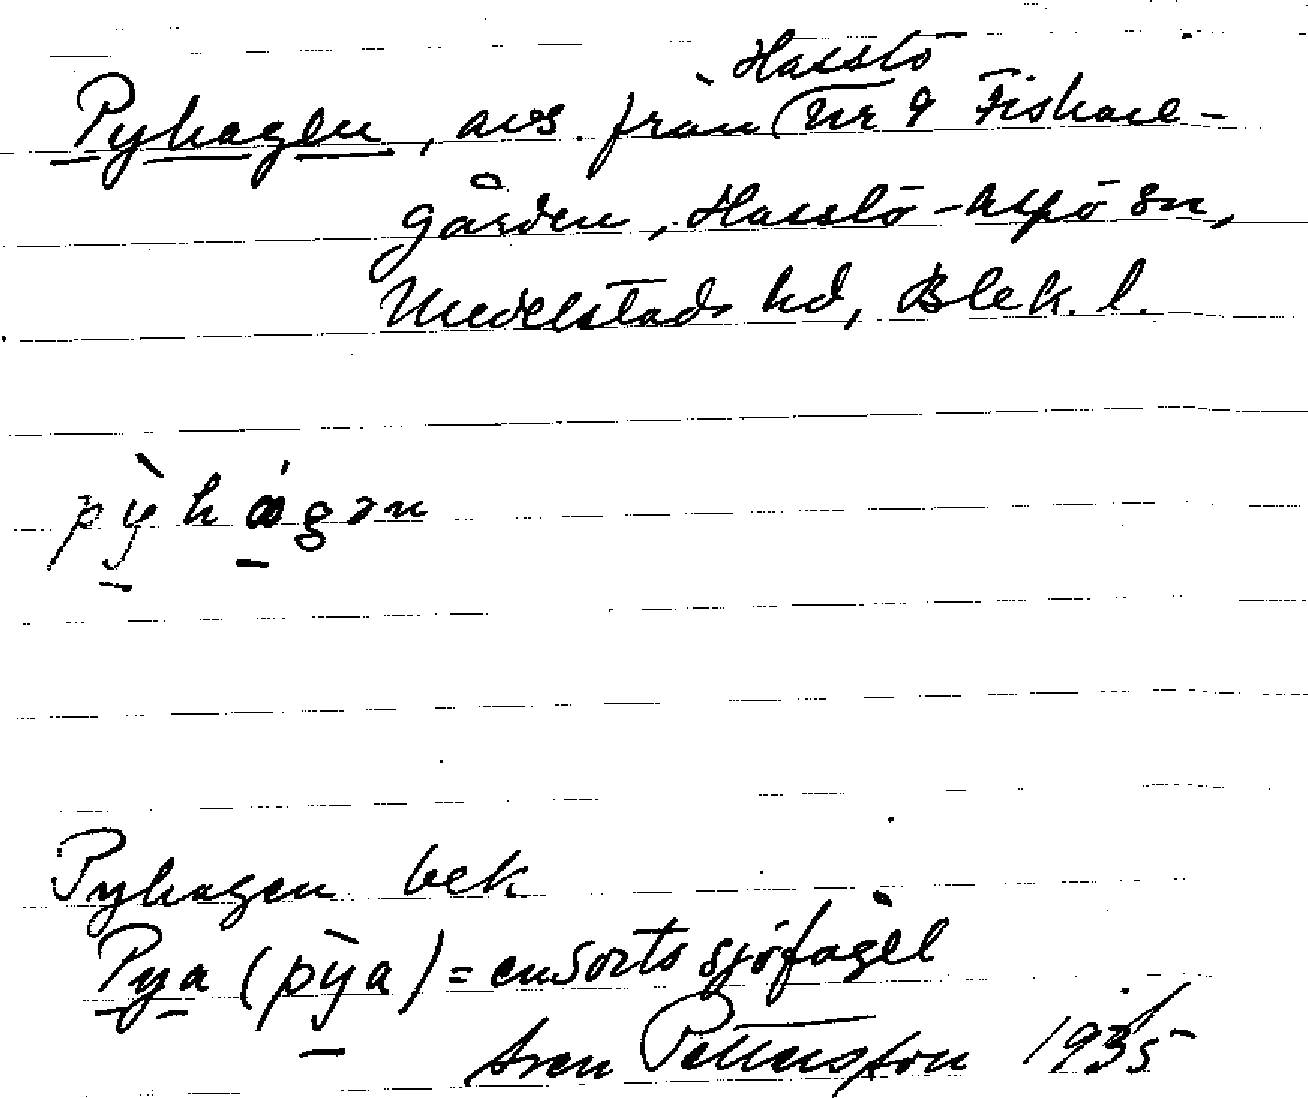 Hasslö
Pyhagen, avs. från Nr 9 Fiskare-
gården, Hasslö-Aspö sn,
Medelstads hd, Blek. l.
pỳhágən
Pyhagen bek
Pya (pỳa) = en sorts sjöfågel
Sven Pettersson 1935